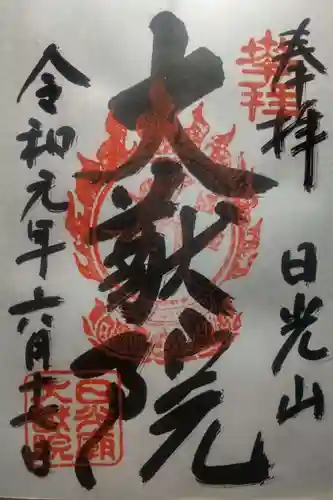 奉拝
日光山
大猷院
令和元年六月十七日
日光廟
大猷院